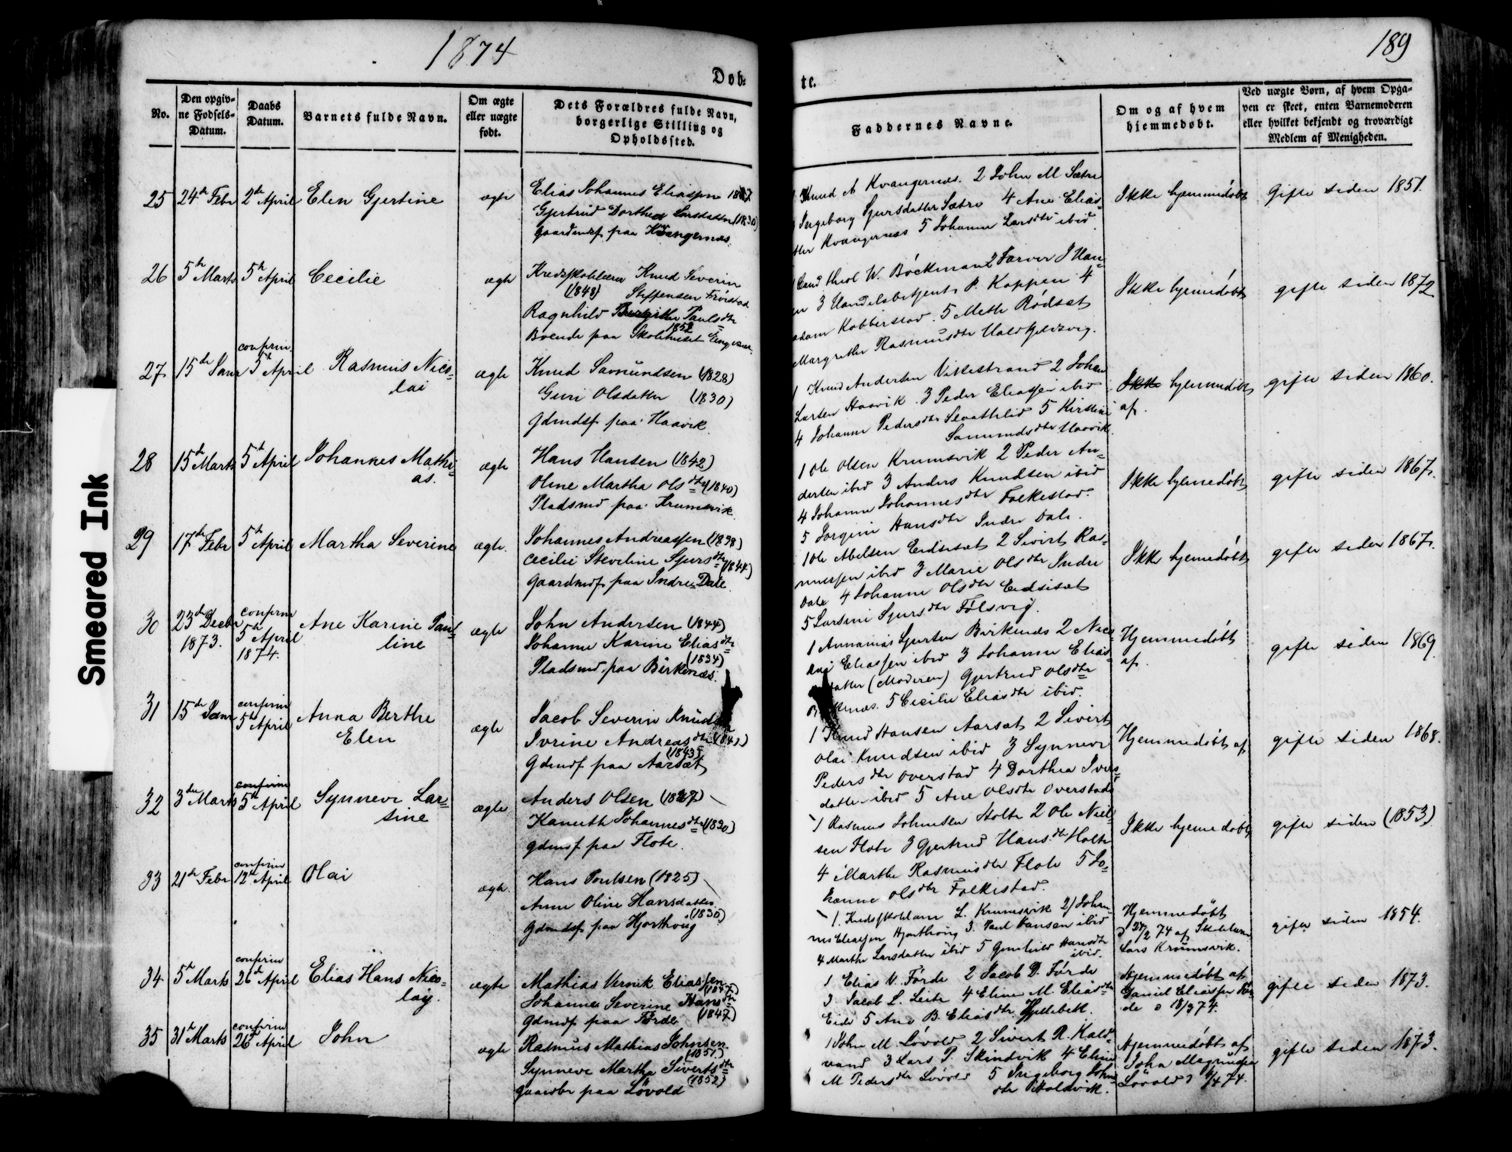 1874
189
Døb-
te.
No.
Den opgiv-
ne Fødsels-
Datum.
Daabs
Datum.
Barnets fulde Navn.
Om ægte
eller uægte
født.
Dets Forældres fulde Navn,
borgerlige Stilling og
Opholdssted.
Faddernes Navne.
Om og af hvem
hjemmedøbt.
Ved uægte Børn, af hvem Opga-
ven er skeet, enten Barnemoderen
eller hvilket bekjendt og troværdigt
Medlem af Menigheden.
25
24de Febr
2de April
Elen Gjertine
ægte
Elias Johannes Eliassen
Gjertrud Dorthea Larsdatter (1830)
gaardmdf. paa Kvangernæs.
Knud A Kvangernæs. 2 John M Sætre
Ingeborg Sjursdatter Sætre 4 Ane Elias
Kvangernæs 5 Johanne Larsdtr ibid
Ikke hjemmedøbt
Gifte siden 1851.
26
5te Marts
5te April
Cecilie
ægte
Knud Severin
(1848) Steffensen
Ragnhild Paulsdtr
1852
Boende paa Skolehuset
Cand theol W. Bøckman 2 Farver J Han-
3 Handelsbetjent P. Koppen 4
Kobberstad. 5 Mette Rødsæt
Margrethe Rasmusdtr
Ikke hjemmedøbt
gifte siden 1872
27
15de Janr
confirm
5te April
Rasmus Nico-
lai
ægte
Knud Samundsen (1828)
Guri Olsdatter (1830)
Gdmdsf paa Haavik.
1 Knud Andersen Vikestrand 2 Johan
Larsen Haavik. 3 Peder Eliassen ibid
4 Johanne Pedersdtr 5 Kirstine
Samundsdtr Haavik
Ikke hjemmedøbt
af.
gifte siden 1860.
28
15de Marts
5te April
Johannes Mathi-
as.
ægte
Hans Hansen (1842)
Oline Martha Olsdtr (1840)
Pladsmd paa Krumsvik.
1 Ole Olsen Krumsvik 2 Peder An-
dersen ibid 3 Anders Knudsen ibid
4 Johanne Johannesdtr Folkestad.
5 Jorgine Hansdtr Indre Dale.
Ikke hjemmedøbt
gifte siden 1867.
29
17de Febr
5te April
Martha Severine
ægte.
Johannes Andreassen (1838)
Cecilie Steveline Sjursdtr (1844)
gaardmdf paa Indre Dale
1 Ole Abelsen Eidsæt 2 Sivert Ras-
mussen ibid 3 Marie Olsdtr Indre
Dale 4 Johanne Olsdtr Eidsæt
5 Larsine Sjursdtr Følsvig.
Ikke hjemmedøbt
gifte siden 1867.
30
23de Decbr
1873.
confirm
5te April
1874.
Ane Karine Pau-
line
ægte
John Andersen (1844)
Johanne Karine Eliasdtr
(1834)
Pladsmd paa Birkenæs.
1 Annanias Gjertsen Birkenæs 2 Nico-
lai Eliassen ibid 3 Johanne Elias
datter (Moderen) Gjertrud Olsdtr
5 Cecilie Eliasdtr ibid.
Hjemmedøbt
af.
gifte siden 1869.
31
15de Janr
confirm
5te April
Anna Berthe
Elen
ægte
Jacob Severin Knudsen
Ivrine Andreasdtr
(1843)
Gdmdf paa Aarsæt
1 Knud Hansen Aarsæt 2 Sivert
Olai Knudsen ibid 3 Synneve
Pedersdtr Overstad 4 Dorthea Ivers-
datter ibid 5 Ane Olsdtr Overstad
Hjemmedøbt af
gifte siden 1868.
32
3die Marts
confirm
5te April
Synneve Lar-
sine
ægte
Anders Olsen (1827)
Kanutte Johannesdtr (1830)
gdmdf paa Flote.
1 Rasmus Johnsen Holte 2 Ole Niel-
sen Flote 3 Gjertrud Hansdtr Holte
4 Marthe Rasmusdtr Flote 5 Jo-
hanne Olsdtr Folkestad.
Ikke hjemmedøbt
gifte siden (1853)
33
21de Febr
confirm
12te April
Olai
ægte.
Hans Poulsen (1825)
Anne Oline Hansdatter
(1830)
Gdmdsf paa Hjorthoug
1. Kredsskolelærer L. Krumsvik 2/ Johan-
nes Eliassen Hjorthoug 3. Paul Hansen ibid
4 Marthe Larsdatter ibid 5 Gunhild Hansdtr
ibid.
Hjemmedøbt
27/2 74 af Skolelærer
Lars Krumsvik.
gifte siden 1854.
34
5te Marts
confirm
26de April
Elias Hans Nico-
lay
ægte
Mathias Eliassen
(1847)
Johanne Severine Hansdtr
(1847)
Gdmdf paa Førde
1 Elias V. Førde 2 Jacob D. Førde
3 Jacob L. Leite 4 Eline M. Eliasdtr
Eide 5 Ane B. Eliasdtr Hjellebøtt.
Hjemmedøbt af
Daniel Eliassen
gifte siden 1873.
35
31te Marts
confirm
26de April
John
ægte
Rasmus Mathias Johnsen
(1851)
Synneve Martha Sivertsdtr
(1852)
gaardbr paa Løvold
1 John M. Løvold 2 Sivert R. Kald-
vand 3 Lars P. Skindvik 4 Eline
M Pedersdtr Løvold 5 Ingeborg John-
dtr
Hjemmedøbt af
John
Løvold
gifte siden 1873.
Smeared Ink